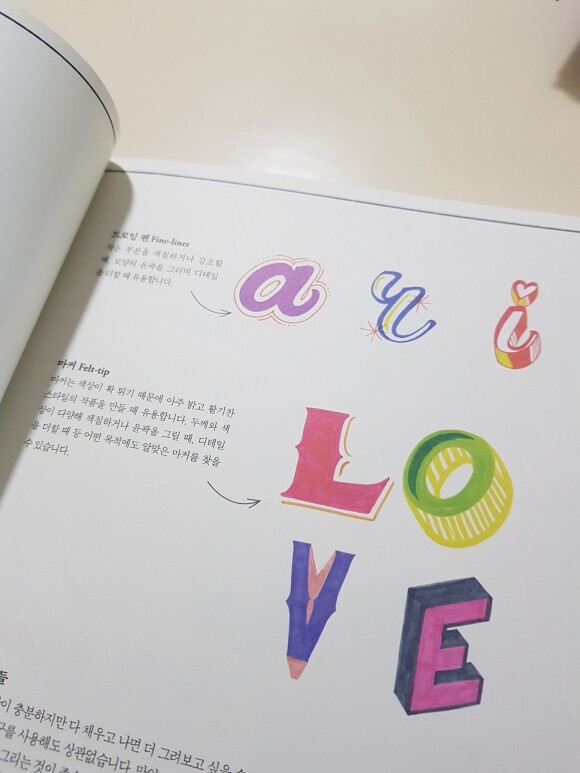 드로잉 펜 Fine-liner
작은 부분을 색칠하거나 강조할
때, 모양의 윤곽을 그리며 디테일
을 더할 때 유용합니다.
a r i
마커 Felt-tip
마커는 색상이 확 튀기 때문에 아주 밝고 활기찬
스타일의 작품을 만들 때 유용합니다. 두께와 색
상이 다양해 색칠하거나 윤곽을 그릴 때, 디테일
을 더할 때 등 어떤 목적에도 알맞은 마커를 찾을
수 있습니다.
LO
VE
들
이 충분하지만 다 채우고 나면 더 그려보고 싶을
구를 사용해도 상관없습니다.
그리는 것이